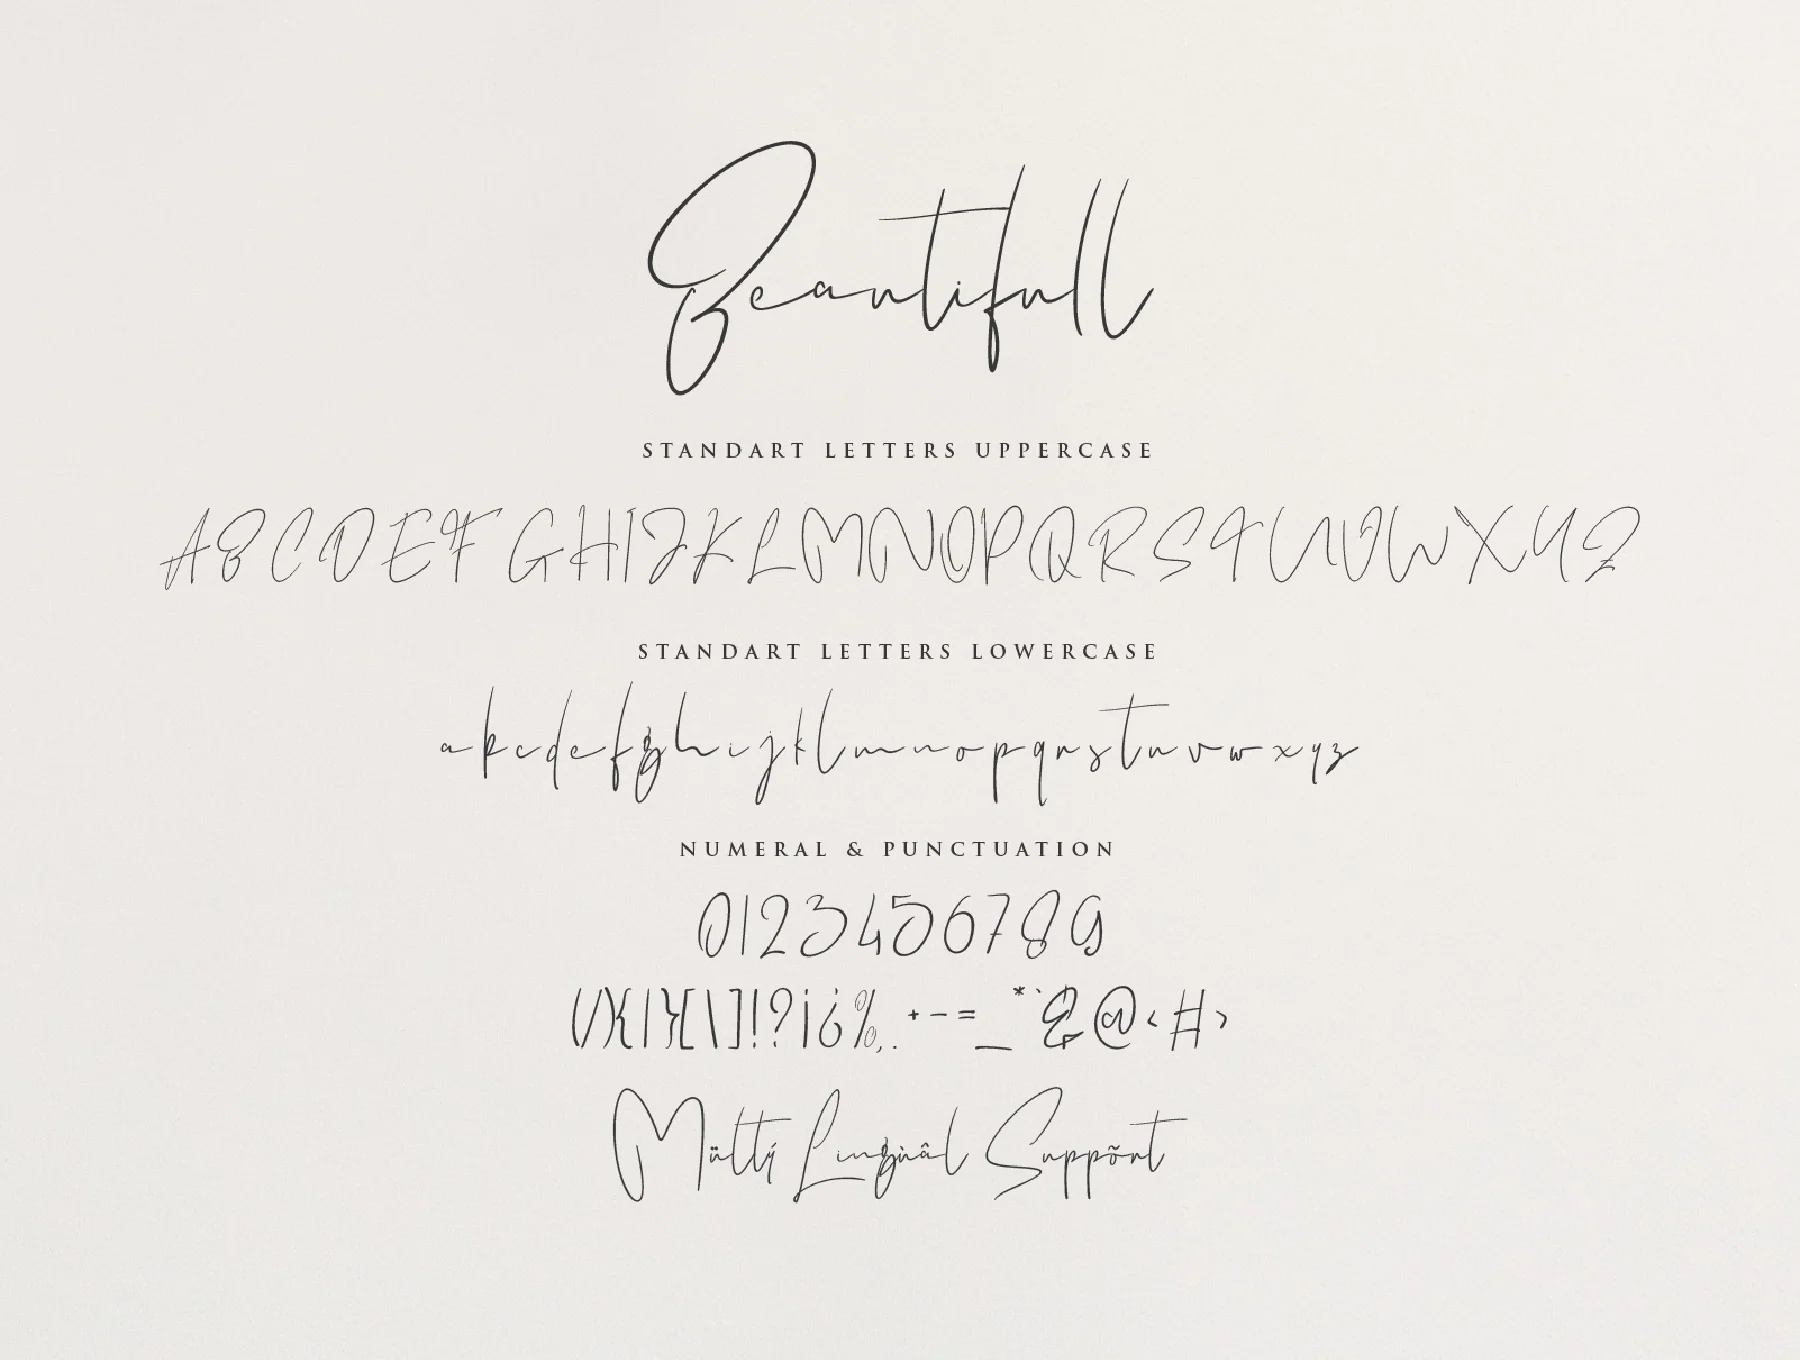 Beautifull
STANDART LETTERS UPPERCASE
ABCDEFGHIJKLMNOPQRSTUVWXYZ
STANDART LETTERS LOWERCASE
abcdefghijklmnopqrstuvwxyz
NUMERAL & PUNCTUATION
0123456789
(/){|}[\]!?¡¿%,.+-=_*`&@<#>
Mültý Lingùâl Suppõrt